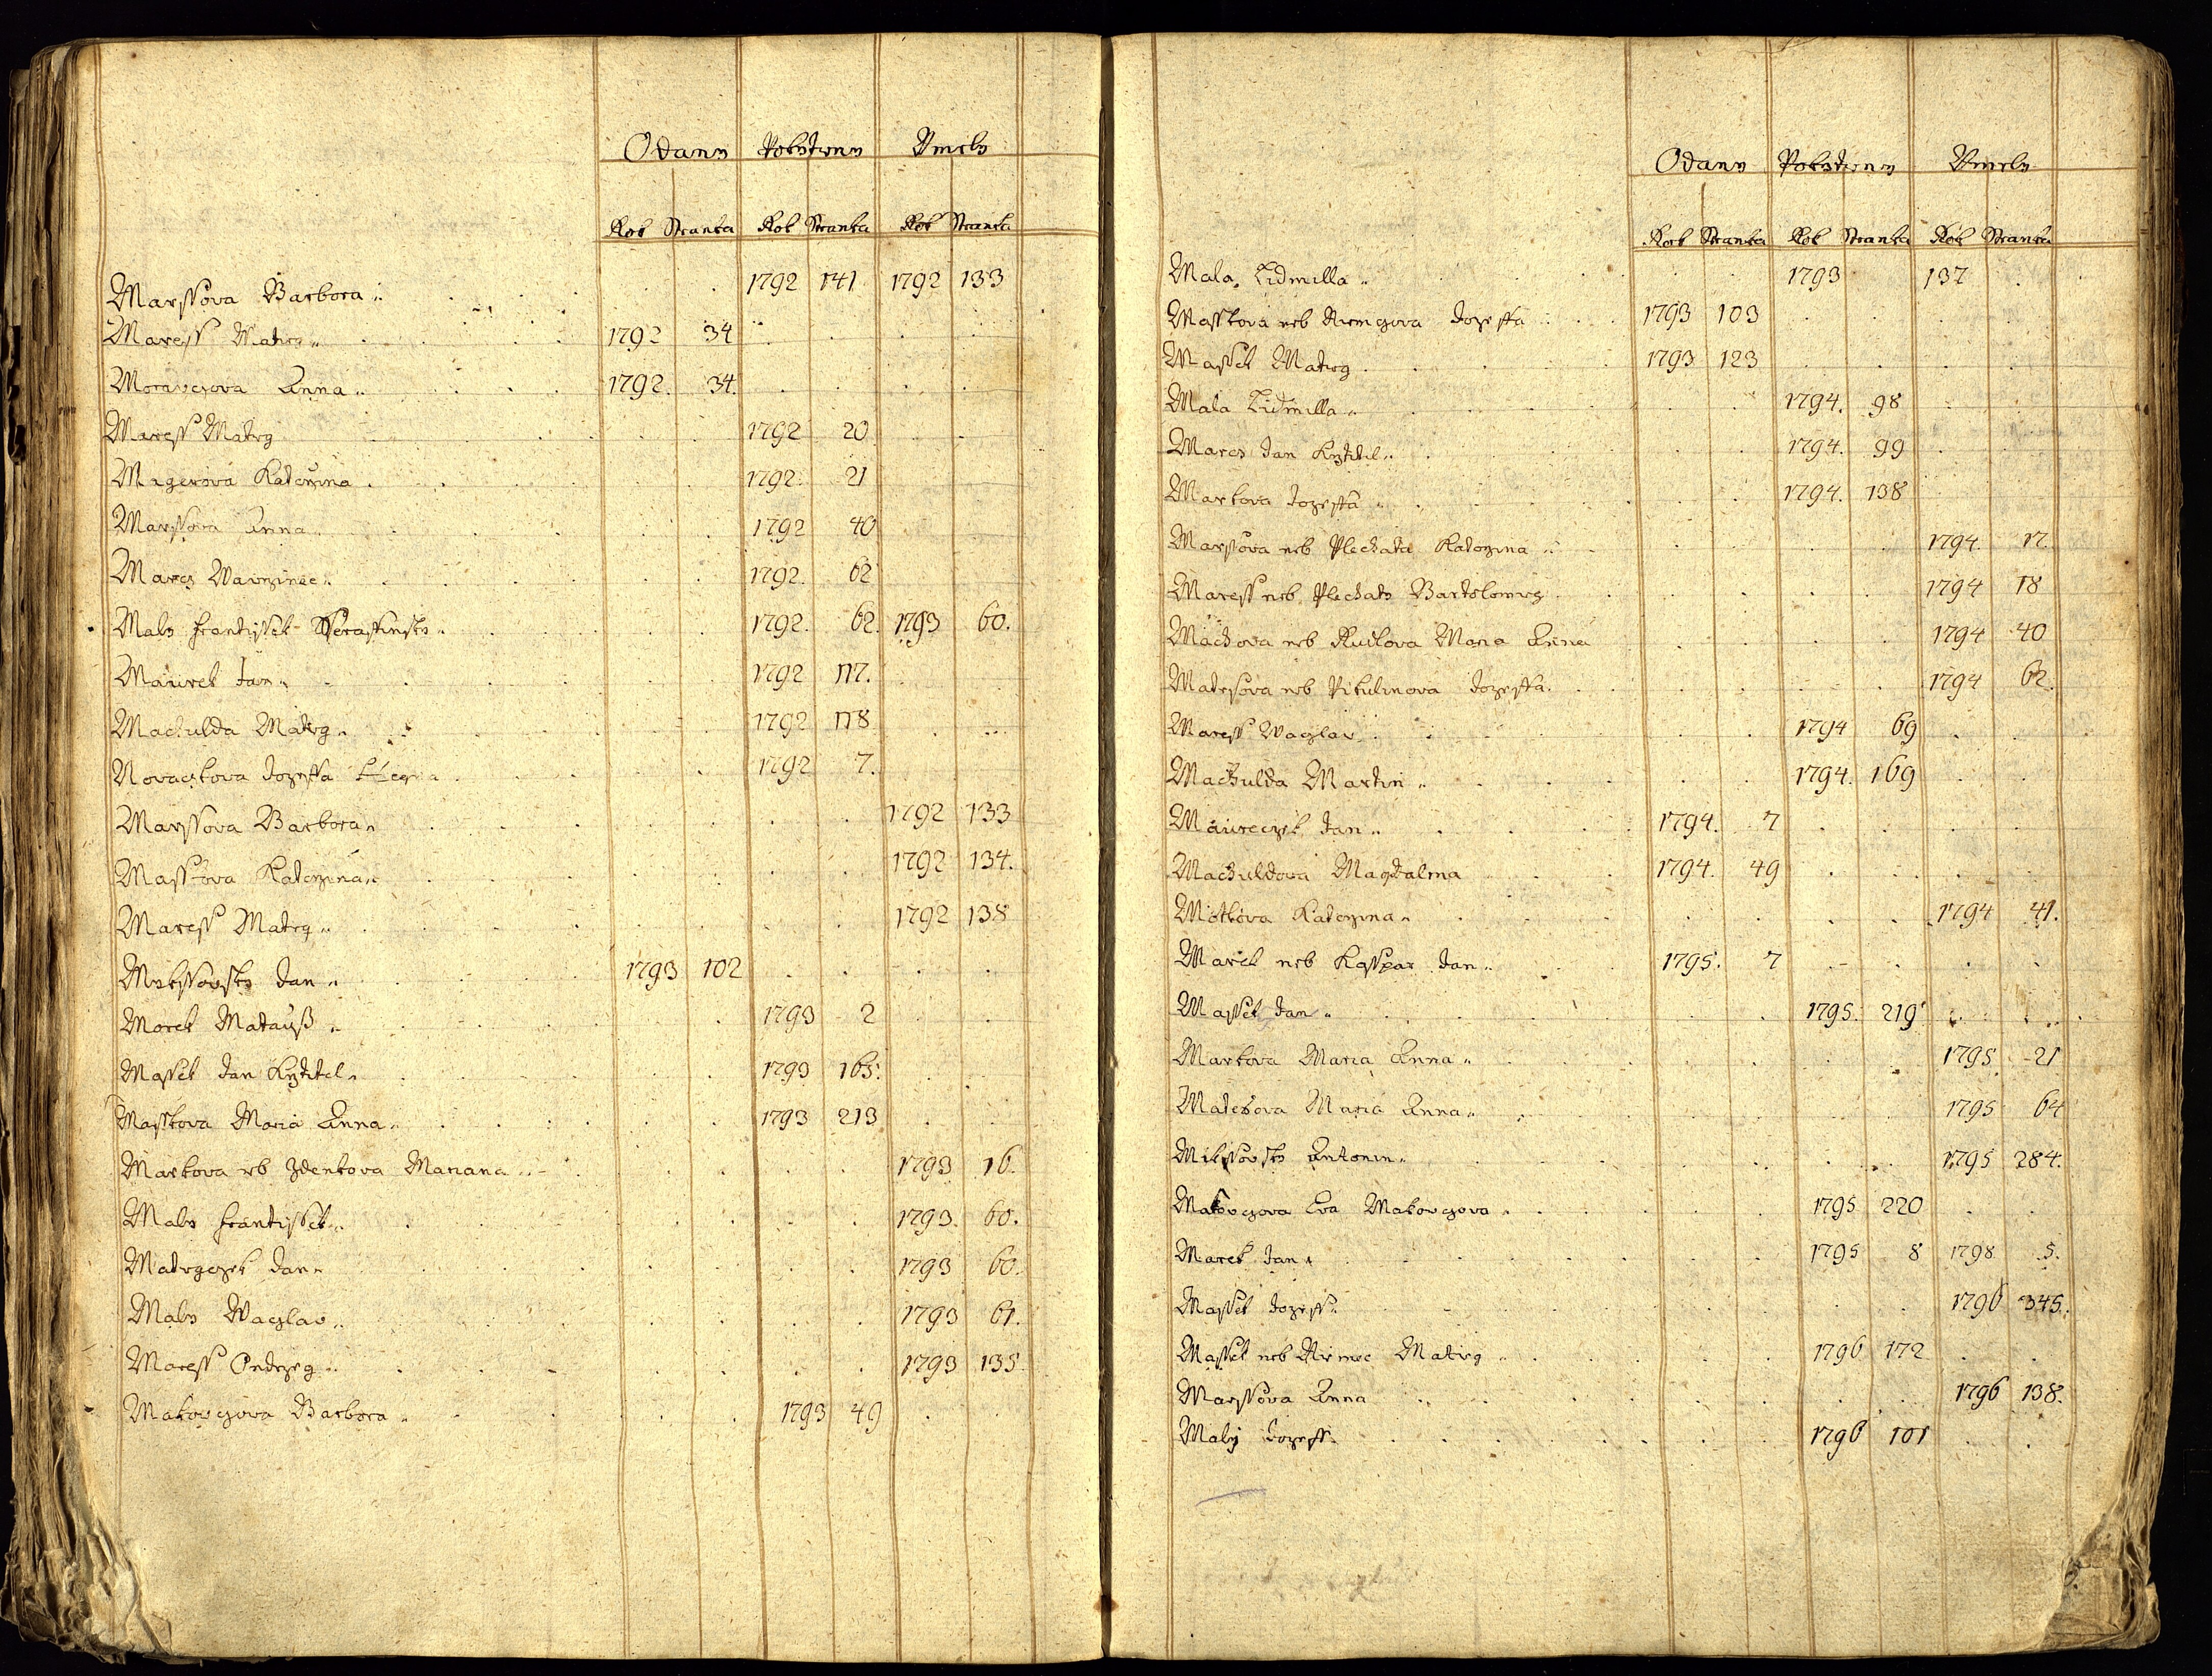 Odany Pokrztieny Vmrely
Rok Stranka Rok Stranka Rok Stranka
Marssova Barbora 1792 141 1792 133
Maress Mateg 1792 34
Moravcgova Anna 1792. 34.
Maress Mateg 1792 20
Magerova Katerzina 1792. 21
Marssova Anna 1792 40
Marcz Wawrzinec 1792. 62
Maly Frantissek Seraffinsky 1792. 62. 1793 60.
Maurek Jan 1792 117.
Machulda Mateg 1792 118
Novaczkova Jozeffa 1792 7.
Marssova Barbora 1792 133
Masskova Katerzina 1792 134.
Maress Mateg 1792 138
Mikssovsky Jan 1793 102
Morek Matauss 1793 2
Massek Jan Krztitel 1793 165.
Masskova Maria Anna 1793 213
Markova neb Zdenkova Mariana 1793 16.
Maly Frantissek 1793. 60.
Mategczek Jan 1793 60.
Maly Waczlav 1793 61.
Maress Ondrzeg 1793 135
Makovcgova Barbora 1793 49
Odany Pokrztieny Vmrely
Rok Stranka Rok Stranka Rok Stranka
Mala Lidmilla 1793 137
Masskova neb Niemcgova Jozeffa 1793 103
Massek Mateg 1793 123
Mala Lidmilla 1794. 98
Marcz Jan Krztitel 1794. 99
Markova Jozeffa 1794. 138
Marssova neb Plechata Katerzina 1794. 17.
Maress neb Plechaty Bartolomeg 1794 18
Machova neb Kuclova Maria Anna 1794 40
Matessova neb Pikulinova Jozeffa 1794 62.
Maress Waczlav 1794 69
Machulda Martin 1794. 169
Maureczek Jan 1794. 7
Machuldova Magdalena 1794. 49
Motkova Katerzina 1794 41.
Marek neb Kasspar Jan 1795. 7
Massek Jan 1795. 219
Markova Maria Anna 1795. 21
Matessova Maria Anna 1795 64
Mikssovsky Antonin 1795 284.
Makovcgova Eva Makovcgova 1795 220
Marek Jan 1795 8 1798 5.
Massek Jozeff 1796 345.
Massek neb Niemec Mateg 1796 172
Marssova Anna 1796 138.
Maly Jozeff 1796 101